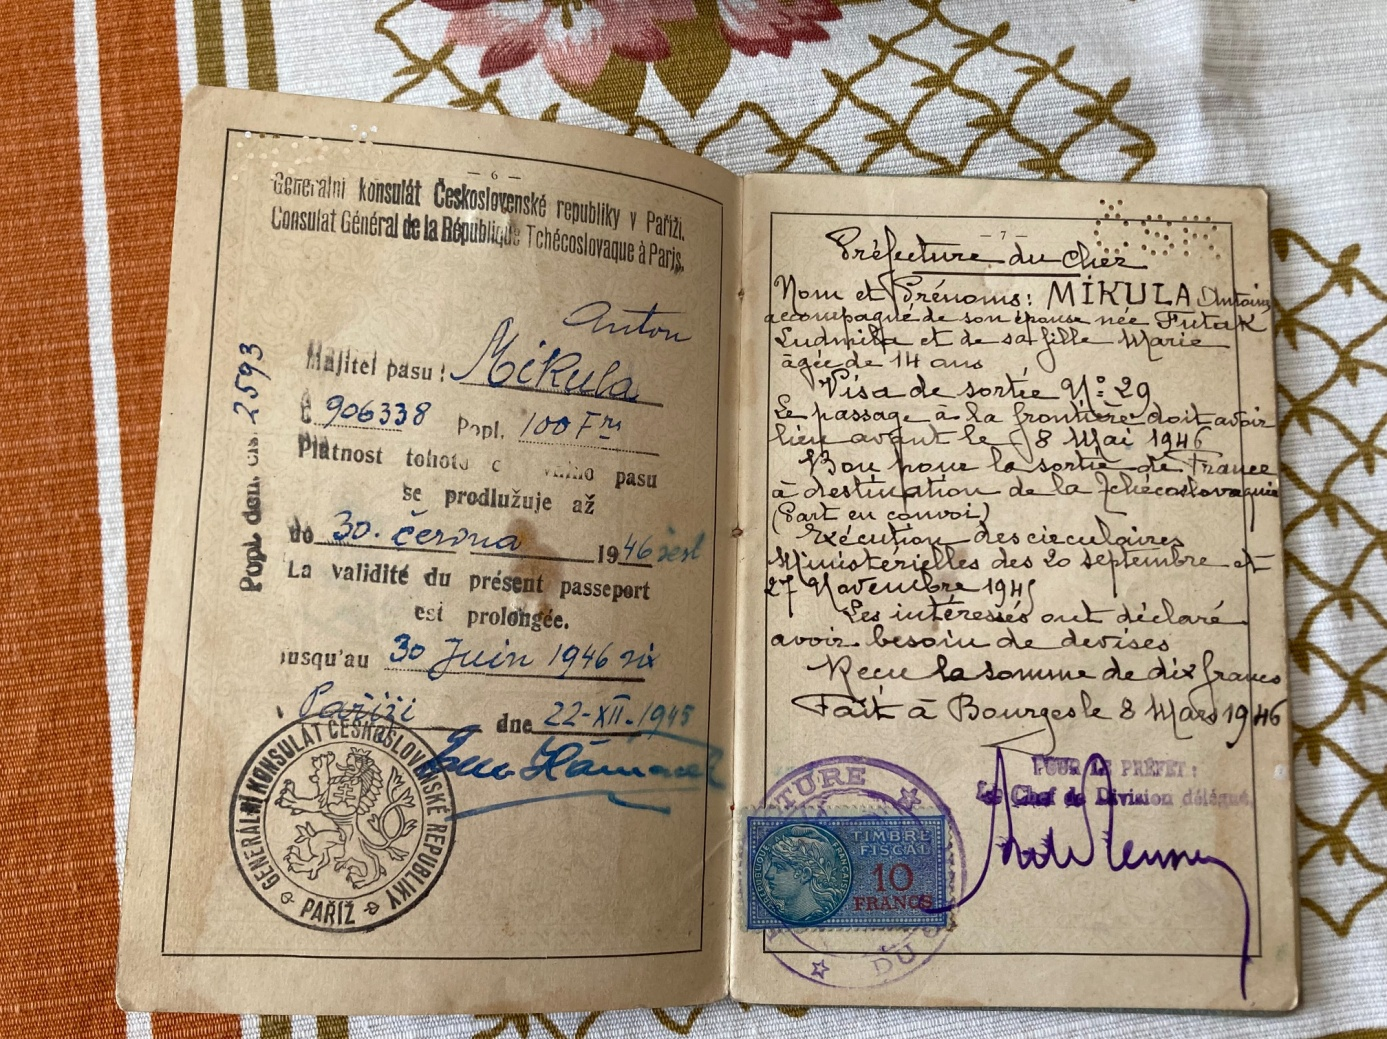 — 6 —
Generální konsulát Československé republiky v Paříži.
Consulat Général de la République Tchécoslovaque à Paris.
Anton
Majitel pasu: Mikula
č 906338 Popl. 100 Frs
Platnost tohoto pasu
se prodlužuje až
do 30. června 1946 šest
La validité du présent passeport
est prolongée.
jusqu'au 30 Juin 1946 six
Paříži dne 22-XII-1945
GENERÁLNÍ KONSULÁT ČESKOSLOVENSKÉ REPUBLIKY
PAŘÍŽ
Popl. den. čís. 2593
— 7 —
ČSR
Préfecture du Cher
Nom et Prénoms: MIKULA Antoine
accompagné de son épouse née Futak
Ludmila et de sa fille Marie
âgée de 14 ans
Visa de sortie N: 29
Le passage à la frontière doit avoir
lieu avant le 8 Mai 1946
Bon pour la sortie de France
à destination de la Tchécoslovaquie
(Part en convoi)
Exécution des circulaires
Ministérielles des 20 septembre et
27 Novembre 1945
Les intéressés ont déclaré
avoir besoin de devises
Reçu la somme de dix francs
Fait à Bourges le 8 Mars 1946
POUR LE PRÉFET:
Le Chef de Division délégué,
TURE
DU
TIMBRE
FISCAL
10
FRANCS
REPUBLIQUE FRANÇAISE